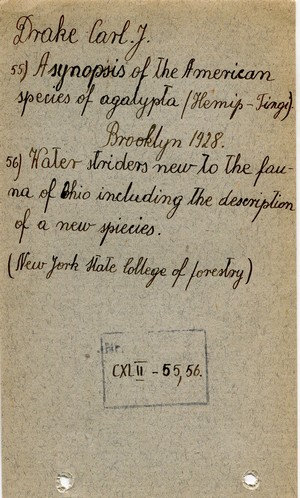 Drake Carl J.
55) A synopsis of the American
species of agalypta (Hemip-Tingi).
Brooklyn 1928.
56) Water striders new to the fau-
na of Ohio including the description
of a new spiecies.
(New York state College of forestry)
CXLII - 55, 56.